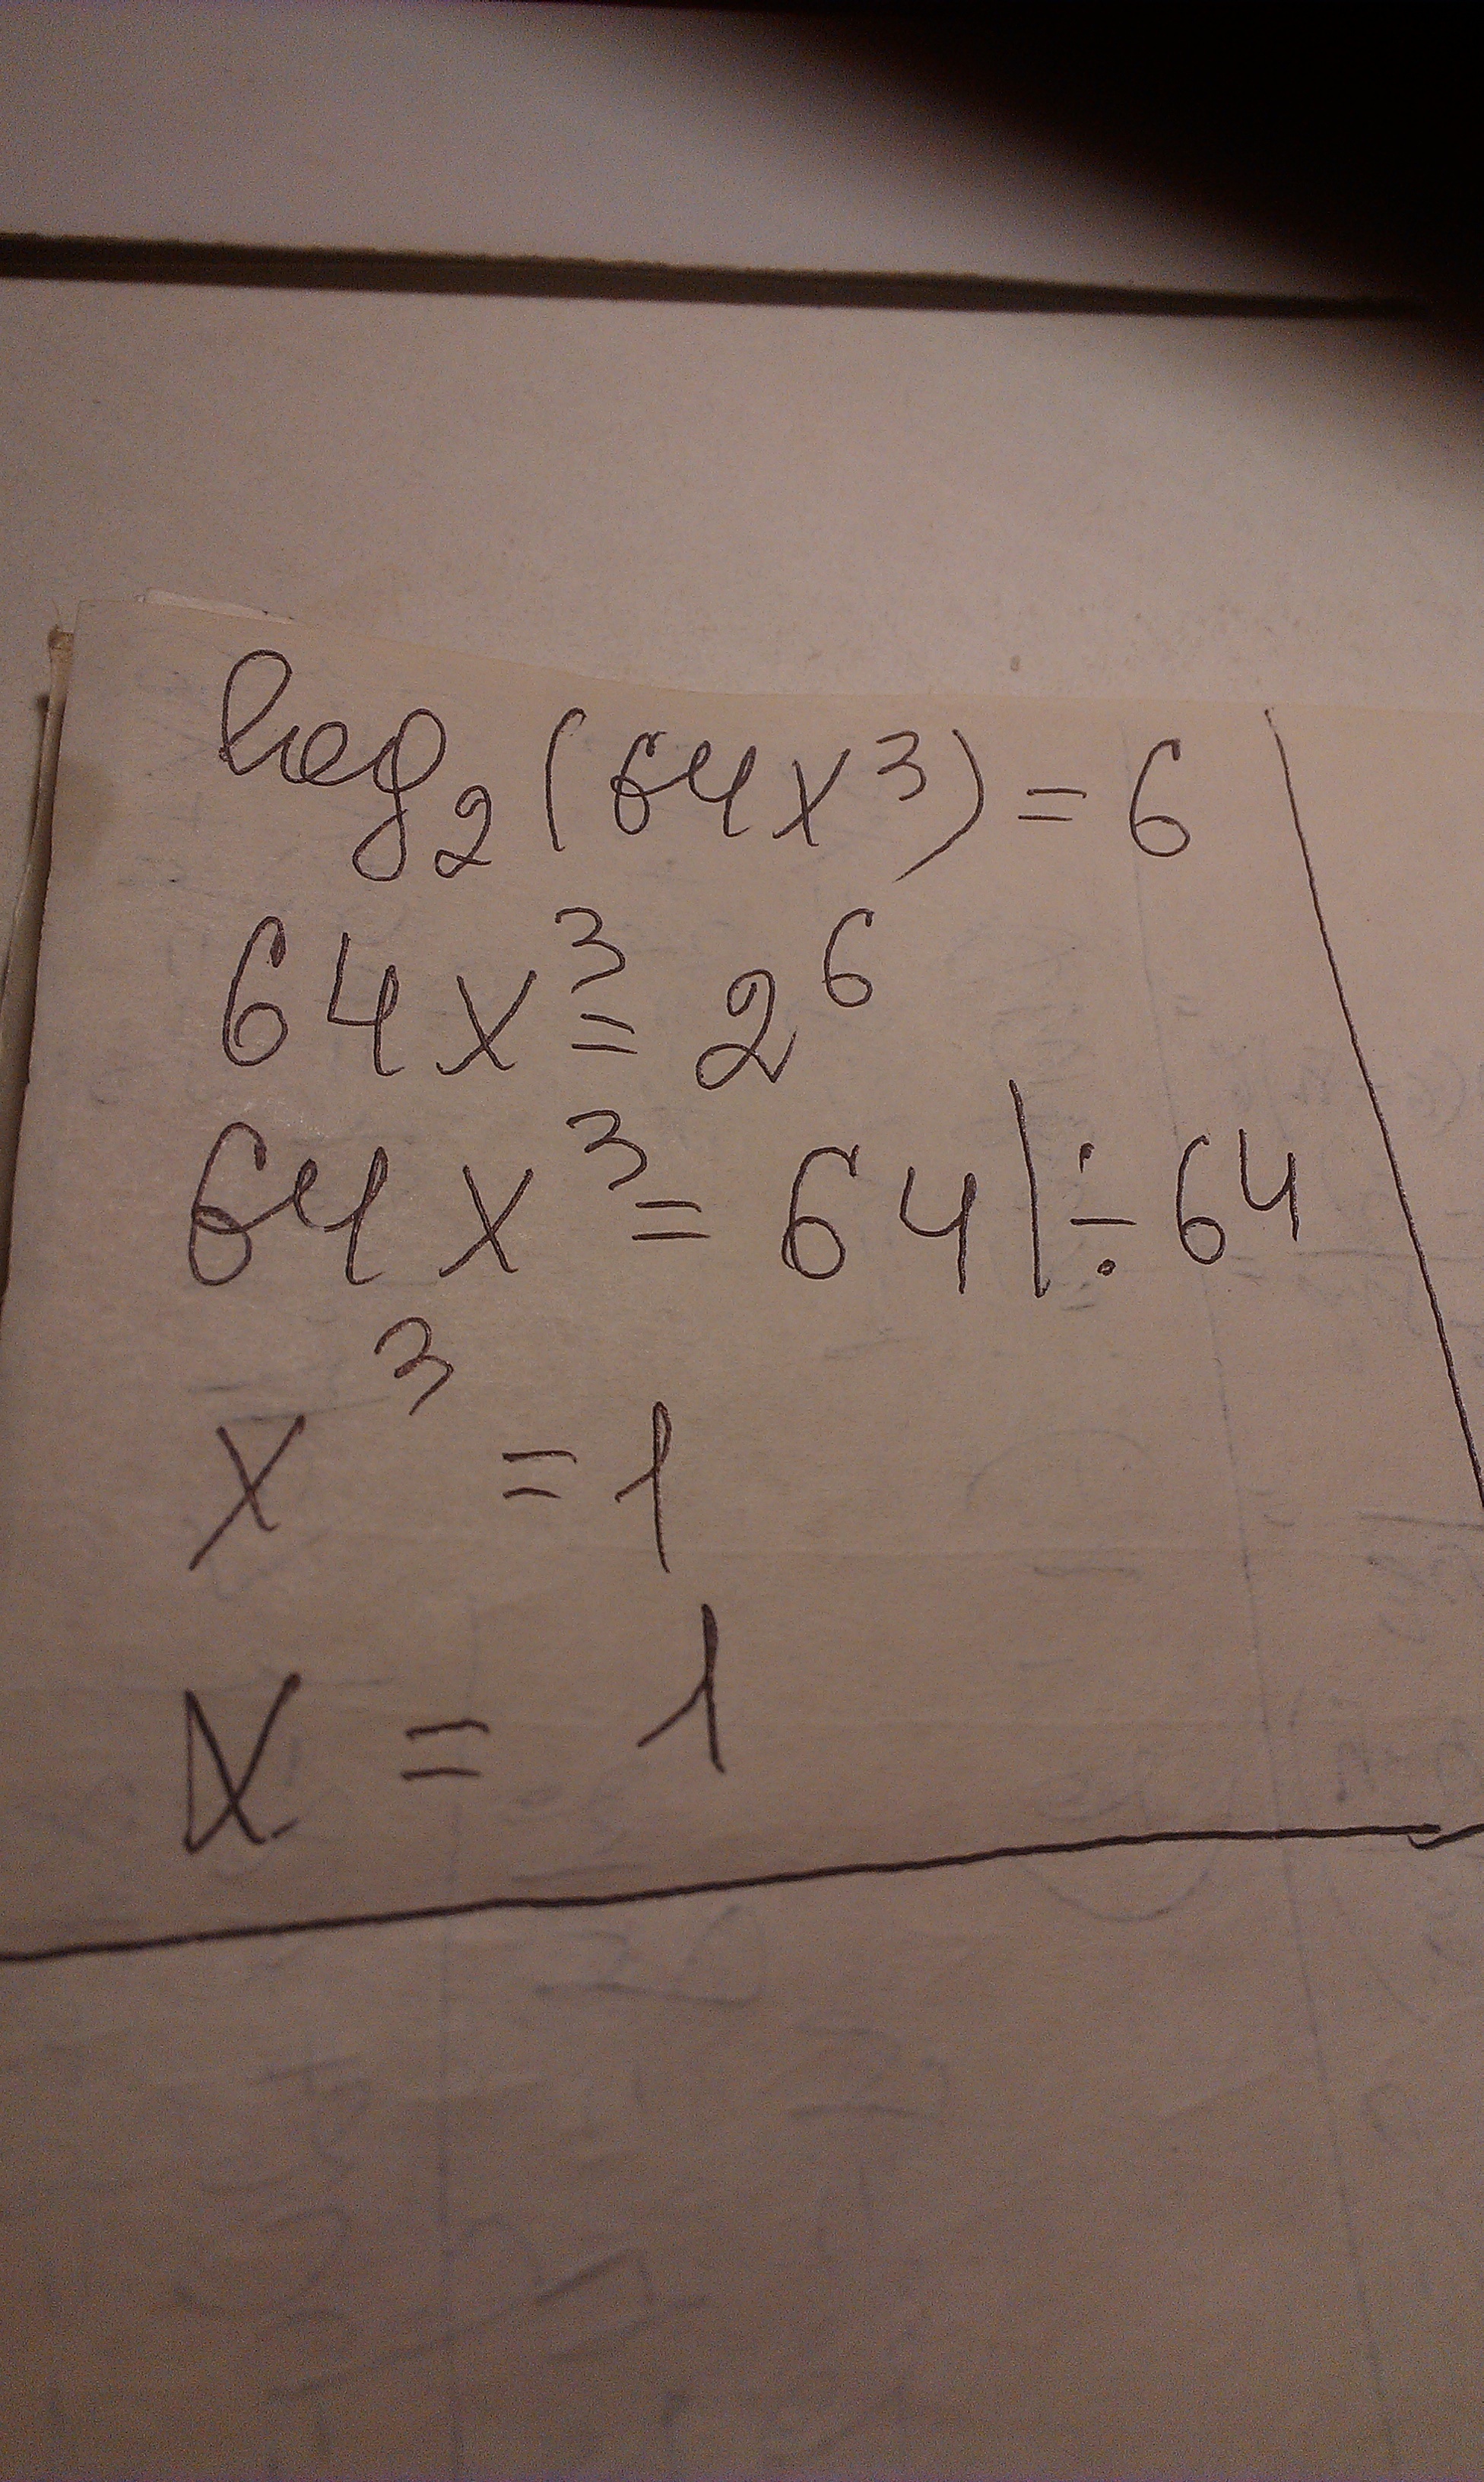 log₂(64x³) = 6
64x³ = 2⁶
64x³ = 64 | ÷ 64
x³ = 1
x = 1